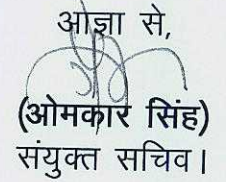 आज्ञा से,
(ओमकार सिंह)
संयुक्त सचिव।